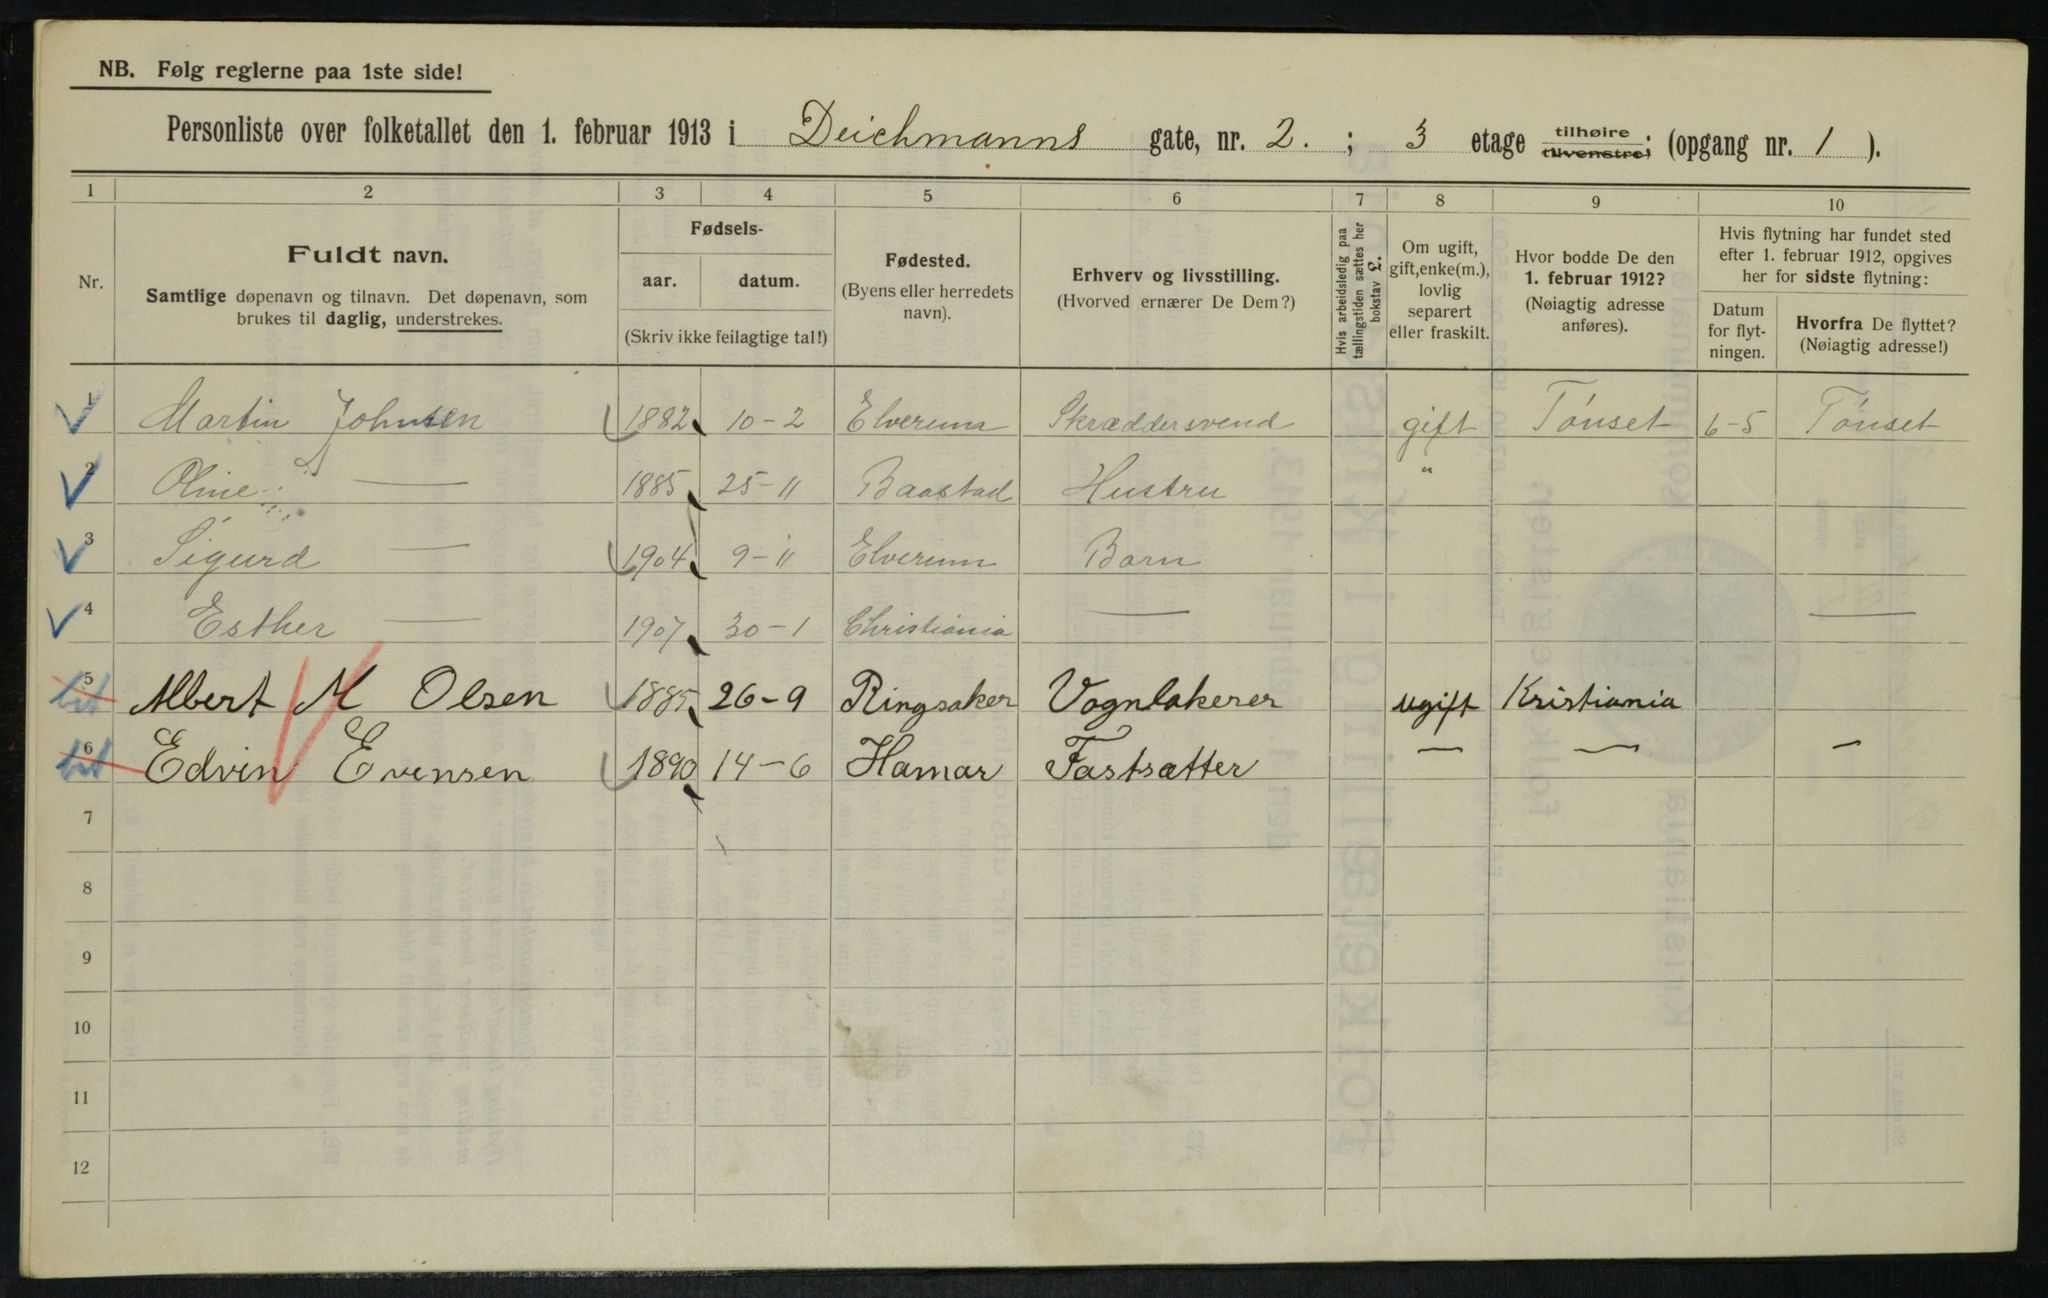 NB. Følg reglerne paa 1ste side!
Personliste over folketallet den 1. februar 1913 i Deichmanns gate, nr. 2. ; 3 etage tilhøire tilvenstre; (opgang nr. 1 ).
1 2 3 4 5 6 7 8 9 10
Nr.
Fuldt navn.
Samtlige døpenavn og tilnavn. Det døpenavn, som
brukes til daglig, understrekes.
Fødsels-
aar. datum.
(Skriv ikke feilagtige tal!)
Fødested.
(Byens eller herredets
navn).
Erhverv og livsstilling.
(Hvorved ernærer De Dem?)
Hvis arbeidsledig paa
tællingstiden sættes her
bokstav L.
Om ugift,
gift, enke(m.),
lovlig
separert
eller fraskilt.
Hvor bodde De den
1. februar 1912?
(Nøiagtig adresse
anføres).
Hvis flytning har fundet sted
efter 1. februar 1912, opgives
her for sidste flytning:
Datum
for flyt-
ningen.
Hvorfra De flyttet?
(Nøiagtig adresse!)
1 Martin Johnsen 1882 10-2 Elverum Skræddersvend gift Tönset 6-5 Tönset
2 Oline — 1885 25-11 Baastad Hustru "
3 Sigurd — 1904 9-11 Elverum Barn
4 Esther — 1907 30-1 Christiania — —
5 Albert M Olsen 1885 26-9 Ringsaker Vognlakerer ugift Kristiania
6 Edvin Evensen 1890 14-6 Hamar Fastsætter — — —
7
8
9
10
11
12